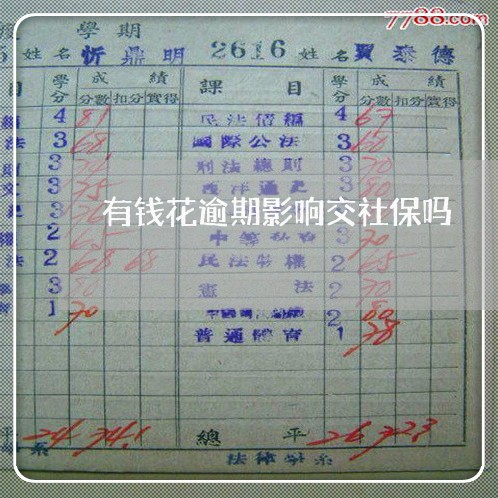 7788.com
學期
姓名 忻鼎明 2616 姓名 賈泰德
目 學分 成績 課目 學分 成績
分數 扣分 實得 分數 扣分 實得
4 81 民法債編 4 67
法 3 68 國際公法 3 60
3 刑法總則 3 70
3 75 西洋通史 3 80
有钱花逾期影响交社保吗
2 65 3 70
法 2 68 68 民法物權 2 65
3 80 憲法 2 70
1 70 2 80
普通體育 1 78
平 24 74.1 總平 26 72.3
系 法律學系